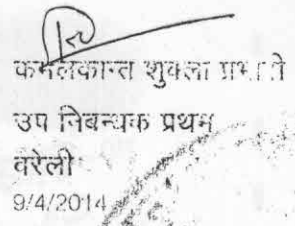 कमलकान्त शुक्ला प्रभारी
उप निबन्धक प्रथम
वरेली
9/4/2014